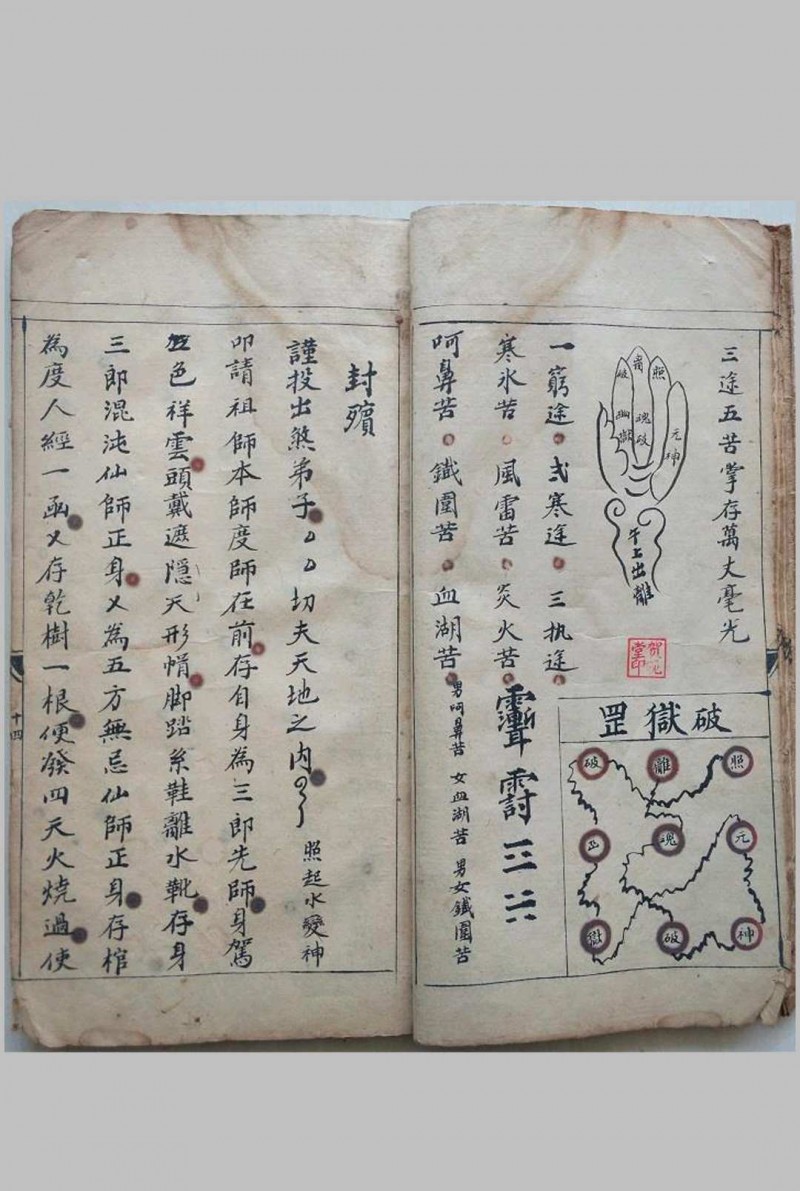 三途五苦掌存萬丈毫光
照
者
破
元神
魂破
幽獄
午上出離
賀元堂印
破獄罡
照
離
破
元
魂
幽
神
破
獄
一窮途 弍寒途 三执途
寒氷苦 風雷苦 炎火苦
呵鼻苦 鐵圍苦 血湖苦
男呵鼻苦 女血湖苦 男女鐵圍苦
封殯
謹投出煞弟子 切夫天地之内 照起水變神
叩請祖師本師度師在前存自身為三郎先師身駕
五色祥雲頭戴遮隱天形帽脚踏糸鞋離水靴存身
三郎混沌仙師正身乂為五方無忌仙師正身存棺
為度人經一函乂存乾樹一根便發四天火燒過使
十四